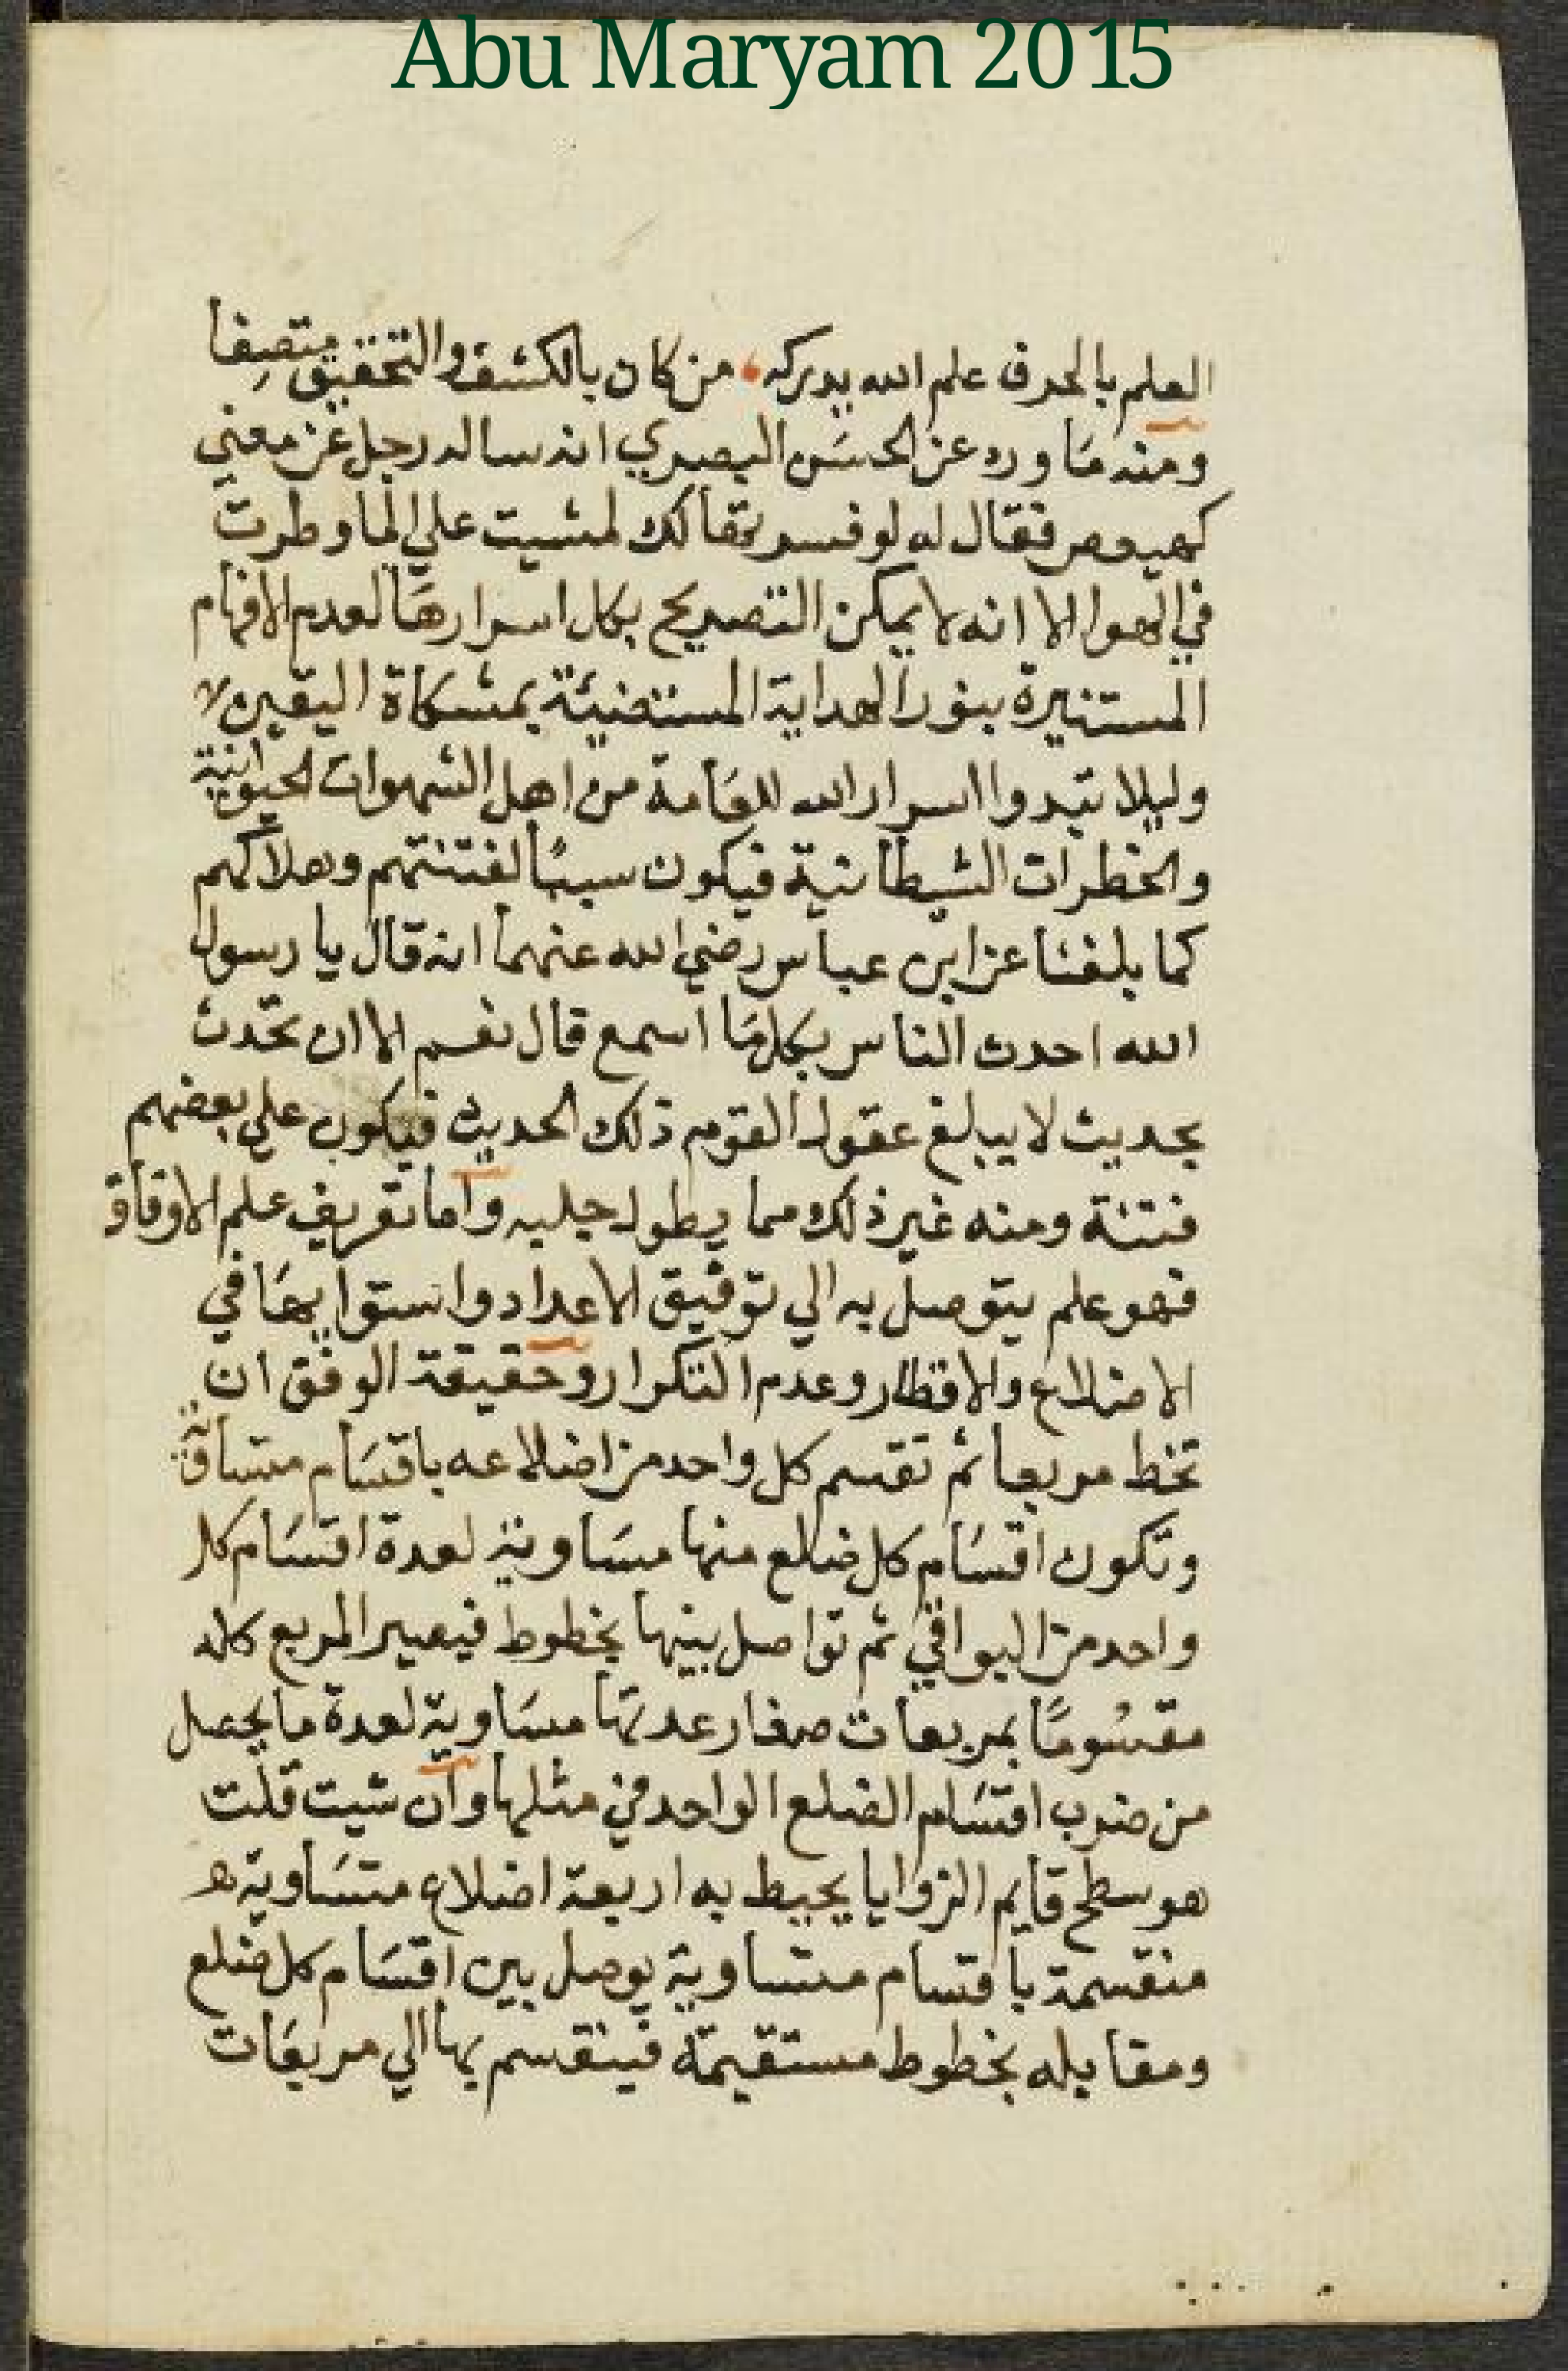 Abu Maryam 2015
العلم بالحرف علم الله يدركه من كان بالكشف والتحقيق متصفا
ومنه ما ورد عن الحسن البصري انه ساله رجل عن معني
كهيعص فقال له لو فسرتها لك لمشيت علي الما وطرت
في الهوا الا انه لا يمكن التصريح بكل اسرارها لعدم الافهام
المستنيرة بنور الهداية المستضيئة بمشكاة اليقين
وليلا تبدوا اسرار الله للعامة من اهل الشهوات الحيوانية
والخطرات الشيطانية فيكون سببا لفتنتهم وهلاكهم
كما بلغنا عن ابن عباس رضي الله عنهما انه قال يا رسول
الله احدث الناس بكل ما اسمع قال نعم الا ان تحدث
بحديث لا يبلغ عقول القوم ذلك الحديث فيكون علي بعضهم
فتنة ومنه غير ذلك مما يطول جلبه واما تعريف علم الاوفاق
فهو علم يتوصل به الي توفيق الاعداد واستوايها في
الاضلاع والاقطار وعدم التكرار وحقيقة الوفق ان
تخط مربعا ثم تقسم كل واحد من اضلاعه باقسام متساوية
وتكون اقسام كل ضلع منها مساوية لعدة اقسام كل
واحد من البواقي ثم تواصل بينها بخطوط فيصير المربع كله
مقسوما بمربعات صغار عدتها مساوية لعدة ما يحصل
من ضرب اقسام الضلع الواحد في مثلها وان شيت قلت
هو سطح قايم الزوايا يحيط به اربعة اضلاع متساوية
منقسمة باقسام متساوية يوصل بين اقسام كل ضلع
ومقابله بخطوط مستقيمة فينقسم بها الي مربعات